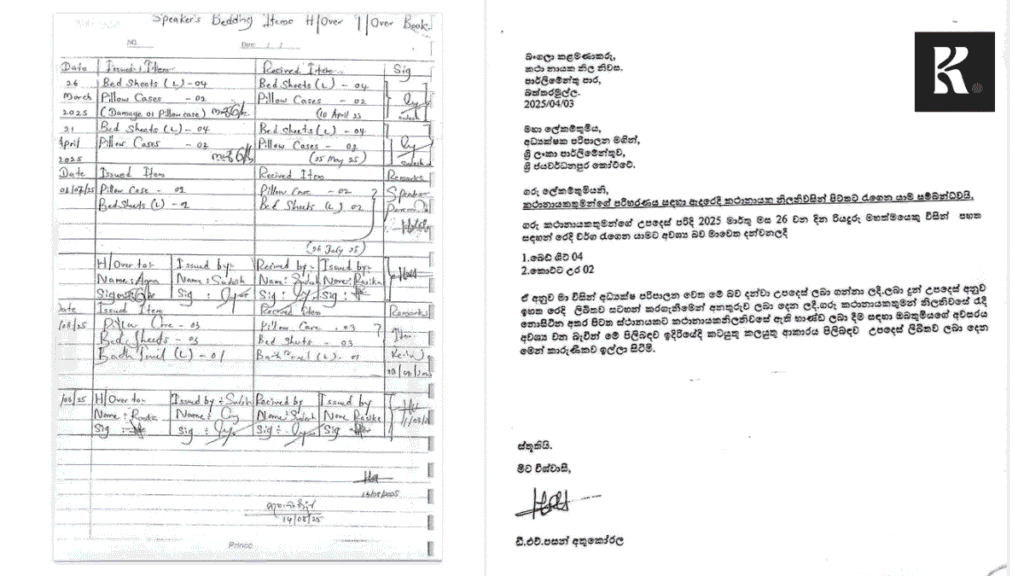 Speaker's Bedding Items H/Over T/Over Book.
NO. Date: / /
Date Issued Item Recived Item Sig
26 Bed Sheets (L) - 04 Bed Sheets (L) - 04
March Pillow Cases - 02 Pillow Cases - 02
2025 (Damage 01 Pillow case) (10 April 25
21 Bed Sheets (L) - 04 Bed Sheets (L) - 04
April Pillow Cases - 02 Pillow Cases - 02
2025 (25 May 25)
Date Issued Item Recived Item Remarks
Pillow Case - 02 Pillow Case - 02
Bed Sheets (L) Bed Sheets (L) 02
(26 July 25)
H/Over to:- Issued by:- Recived by:- Issued by:-
Name: Name: Sudesh Name: Sudesh Name: Rasika
Sign Sig : Sig : Sig :
Date Issued Item Recived Item Remarks
/08/25 Pillow Case - 03 Pillow Case - 03
Bed Sheets - 03 Bed Sheets - 03
Bath Towel (L) - 01 Bath Towel (L) - 01
/08/25 H/Over to:- Issued by : Recived by Issued by
Name: Name: Name: Name Rasika
Sig : Sig : Sig : Sig
14/08/25
Princo
බංගලා කළමණාකරු,
කථා නායක නිල නිවස.
පාර්ලිමේන්තු පාර,
බත්තරමුල්ල.
2025/04/03
K
මහා ලේකම්තුමිය,
අධ්‍යක්ෂක පරිපාලන මගින්,
ශ්‍රී ලංකා පාර්ලිමේන්තුව,
ශ්‍රී ජයවර්ධනපුර කෝට්ටේ.
ගරු ලේකම්තුමියනි,
කථානායකතුමන්ගේ පරිහරණය සඳහා ඇඳරෙදි කථානායක නිලනිවසින් පිටතට රැගෙන යාම සම්බන්ධවයි.
ගරු කථානායකතුමන්ගේ උපදෙස් පරිදි 2025 මාර්තු මස 26 වන දින රියදුරු මහත්මයෙකු විසින් පහත
සඳහන් රෙදි වර්ග රැගෙන යාමට අවශ්‍ය බව මාවෙත දන්වනලදී
1.බෙඩ් ශීට් 04
2.කොට්ට උර 02
ඒ අනුව මා විසින් අධ්‍යක්ෂ පරිපාලන වෙත මේ බව දන්වා උපදෙස් ලබා ගන්නා ලදී.ලබා දුන් උපදෙස් අනුව
ඉහත රෙදි ලිඛිතව සටහන් කරගැනීමෙන් අනතුරුව ලබා දෙන ලදී.ගරු කථානායකතුමන් නිලනිවසේ රැදී
නොසිටින අතර පිටත ස්ථානයකට කථානායකනිලනිවසේ ඇති භාණ්ඩ ලබා දීම සඳහා ඔබතුමියගේ අවසරය
අවශ්‍ය වන බැවින් මේ පිලිබඳව ඉදිරියේදී කටයුතු කලයුතු ආකාරය පිලිබඳව උපදෙස් ලිඛිතව ලබා දෙන
මෙන් කාරුණිකව ඉල්ලා සිටිමි.
ස්තුතියි.
මීට විශ්වාසි,
ඩී.එච්.පසන් අතුකෝරල